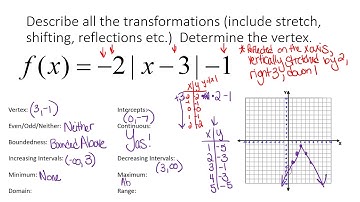 Describe all the transformations (include stretch,
shifting, reflections etc.) Determine the vertex.
* Reflected on the x axis,
vertically stretched by 2,
right 3, down 1
f(x) = −2 | x − 3 | −1
x | y
-2 - 1
Vertex: (3,-1)
Intercepts: (0,-7)
Even/Odd/Neither: Neither
Continuous: Yas!
Boundedness: Bounded Above
Increasing Intervals: (-∞,3)
Decreasing Intervals: (3,∞)
Minimum: None
Maximum:
Domain:
Range:
x | y
1 | -5
2 | -3
3 | -1
4 | -3
5 | -5